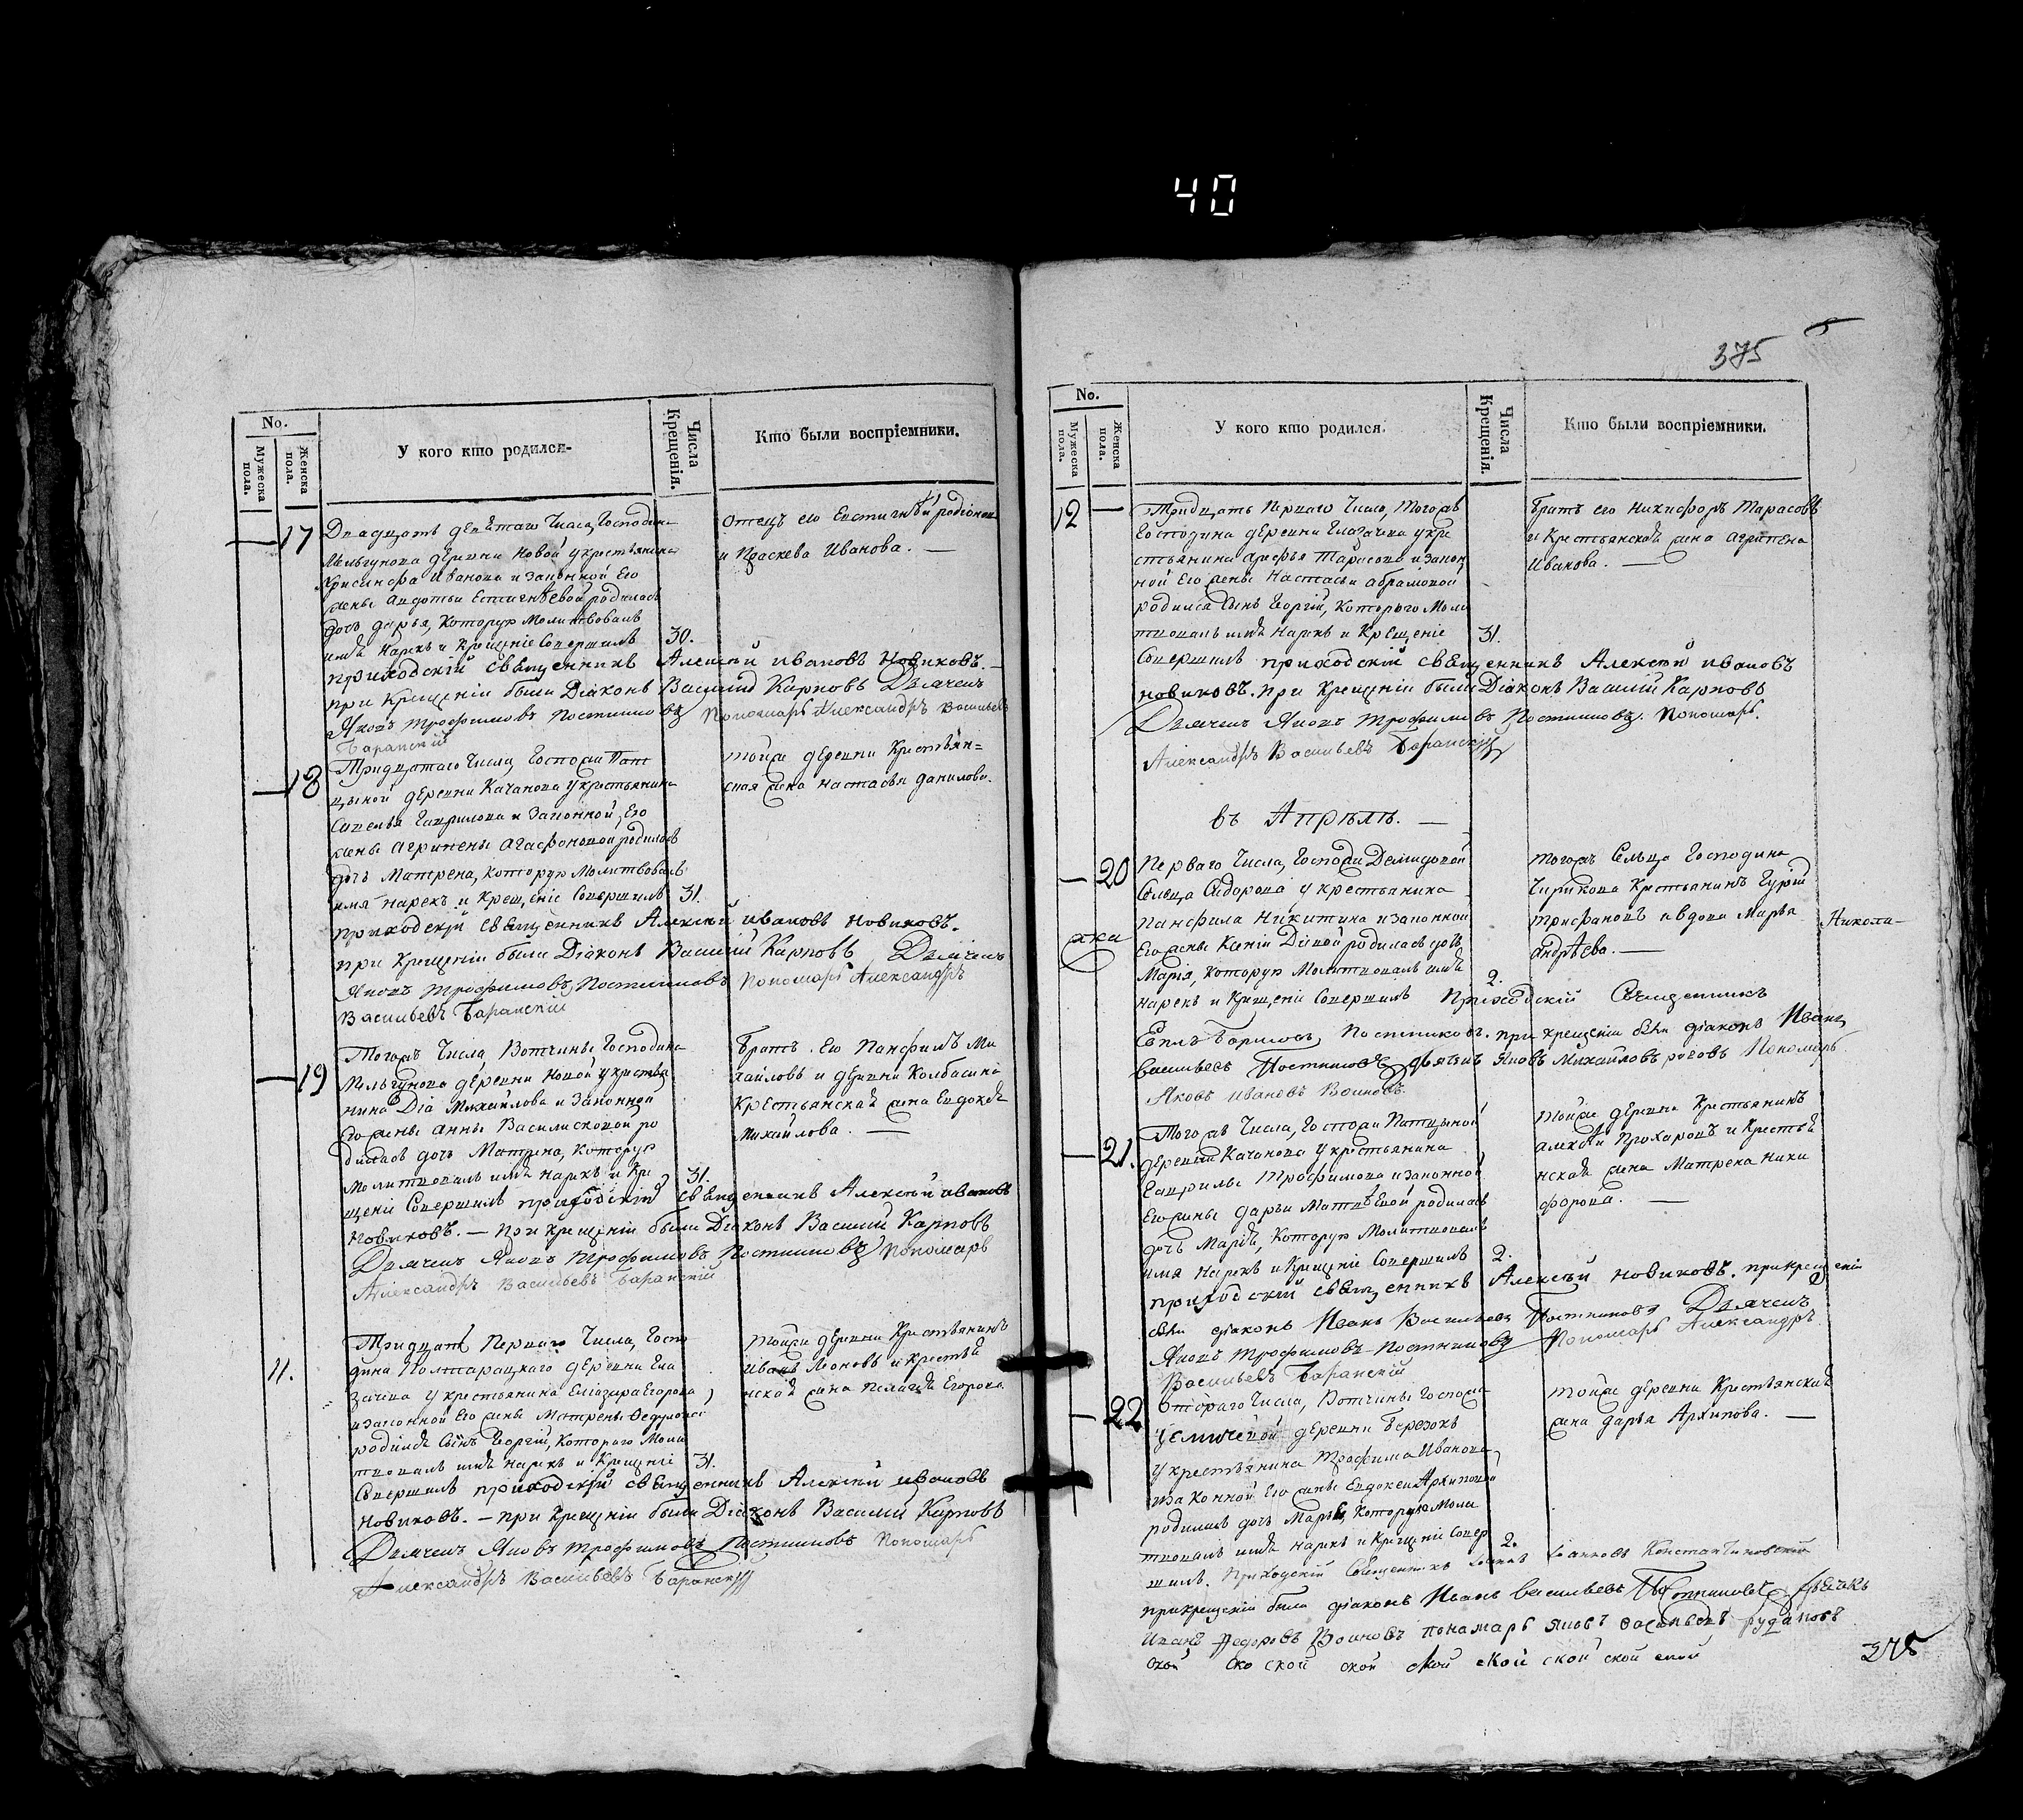 40
No.
Мужеска пола.
Женска пола.
У кого кто родился.
Числа Крещенія.
Кто были воспріемники.
17
Двадцать девѣтаго Числа, Господина
Мельгунова деревни Новой укрестьянина
Хрисанфа Иванова и законной Его
жены Авдотьи Естигнѣевой родилась
дочь дарья, Которую Молитвовалъ
имя Нарекъ и Крещеніе Совершилъ 30.
приходскій священникъ Алексѣй ивановъ Новиковъ.
при крещеніи были Діаконъ Василій Карповъ Дьячекъ
Яковъ Трофимовъ Постниковъ Пономарь Александръ Васильевъ
Баранскій
отецъ его Евстигнѣй родіонов
и Праскева Иванова. —
18
Тридцатаго Числа, Госпожи
деревни Качанова укрестьянина
Савелья Гаврилова и Законной, Его
жены Агрипены Агафоновой родилась
дочь Матрена, которую Молитвовалъ
имя нарекъ и Крещеніе Совершилъ 31.
приходскій священникъ Алексѣй ивановъ новиковъ.
при Крещеніи были Діаконъ Василій Карповъ Дьячекъ
Яковъ Трофимовъ Постниковъ Пономарь Александръ
Васильевъ Баранскій
тойже деревни Крестьян=
ская жена Настасья данилова.
19
Тогожъ Числа, Вотчины Господина
Мельгунова деревни Новой укрестья
нина Діа Михайлова и Законной
Его жены Анны Василисковой ро
дилась дочь Матрена, Которую
Молитвовалъ имя нарекъ и Кре 31.
щеніе Совершилъ приходскій священникъ Алексѣй ивановъ
Новиковъ. — При крещеніи были Діаконъ Василій Карповъ
Дьячекъ Яковъ Трофимовъ Постниковъ Пономарь
Александръ Васильевъ Баранскій
Братъ Его Панфилъ Ми
хайловъ и деревни Колбасина
Крестьянская жена Евдокея
Михайлова. —
11.
Тридцать Перваго Числа, Госпо
дина Полтарацкаго деревни Гла
зачева укрестьянина Елиазара Егорова
и законной Его жены Матрены Федуловой
родился Сынъ Георгій, Котораго Моли
твовалъ имя нарекъ и Крещеніе 31.
Совершилъ приходскій священникъ Алексѣй ивановъ
Новиковъ. — при Крещеніи были Діаконъ Василій Карповъ
Дьячекъ Яковъ Трофимовъ Постниковъ Пономарь
Александръ Васильевъ Баранскій
тойже деревни Крестьянинъ
Иванъ Леоновъ и Крестья
нская жена Пелагѣя Егорова.
375
No.
Мужеска пола.
Женска пола.
У кого кто родился.
Числа Крещенія.
Кто были воспріемники.
12 —
Тридцать Перваго Числа, Тогожъ
Господина деревни Глазачева укре
стьянина арефья Тарасова и закон
ной Его жены Настасьи абрамовой
родился Сынъ Георгій, Котораго Моли
твовалъ имя Нарекъ и Крещеніе 31.
Совершилъ приходскій священникъ Алексѣй ивановъ
новиковъ. при Крещеніи были Діаконъ Василій Карповъ
Дьячекъ Яковъ Трофимовъ Постниковъ. Пономарь.
Александръ Васильевъ Баранскій
Братъ его Никифоръ Тарасовъ
и Крестьянская жена агрипена
Иванова. —
въ Апрѣлѣ. —
— 20
Перваго Числа, Госпожи Демидовой
Сельца Сидорова укрестьянина
Панфила Никитина и законной
Его жены Ксеніи Діевой родилась дочь
Марія, которую Молитвовалъ имя 2.
нарекъ и Крещеніе Совершилъ Приходскій Священникъ
Евплъ Борисовъ Постниковъ. при крещеніи были діаконъ Иванъ
Васильевъ Постниковъ дьячекъ Яковъ Михайловъ Пономарь
Яковъ Ивановъ Воиновъ.
тогожъ Сельца Господина
Чирикова Крестьянинъ Гурій
трифановъ и вдова Марья Никола-
андрѣева. —
— 21.
Тогожъ Числа, Госпожи
деревни Качанова укрестьянина
Гаврилы Трофимова и законной
Его жены дарьи Матвѣевой родилась
дочь Марія, Которую Молитвовалъ
имя Нарекъ и Крещеніе Совершилъ 2.
приходскій священникъ Алексѣй новиковъ. при крещеніи
были діаконъ Иванъ Васильевъ Постниковъ Дьячекъ
Яковъ Трофимовъ Постниковъ Пономарь Александръ
Васильевъ Баранскій
тойже деревни Крестьянинъ
алексѣй Прохаровъ и Крестья
нская жена Матрена Ники
форова. —
— 22
Втораго Числа, Вотчины Госпожи
деревни Березокъ
укрестьянина Трофима Иванова,
и законной Его жены Евдокеи Архиповой
родилась дочь Марья, Которую Моли
твовалъ имя нарекъ и Крещеніе Совер 2.
шилъ. Приходскій Священникъ Іоаннъ Іоанновъ Константиновскій
при крещеніи были діаконъ Иванъ Васильевъ Постниковъ дьячекъ
Иванъ Федоровъ Воиновъ пономарь яковъ васильевъ рудаковъ
ской ско ской ской ской ской ской ской ской
тойже деревни Крестьянская
жена дарья Архипова. —
375